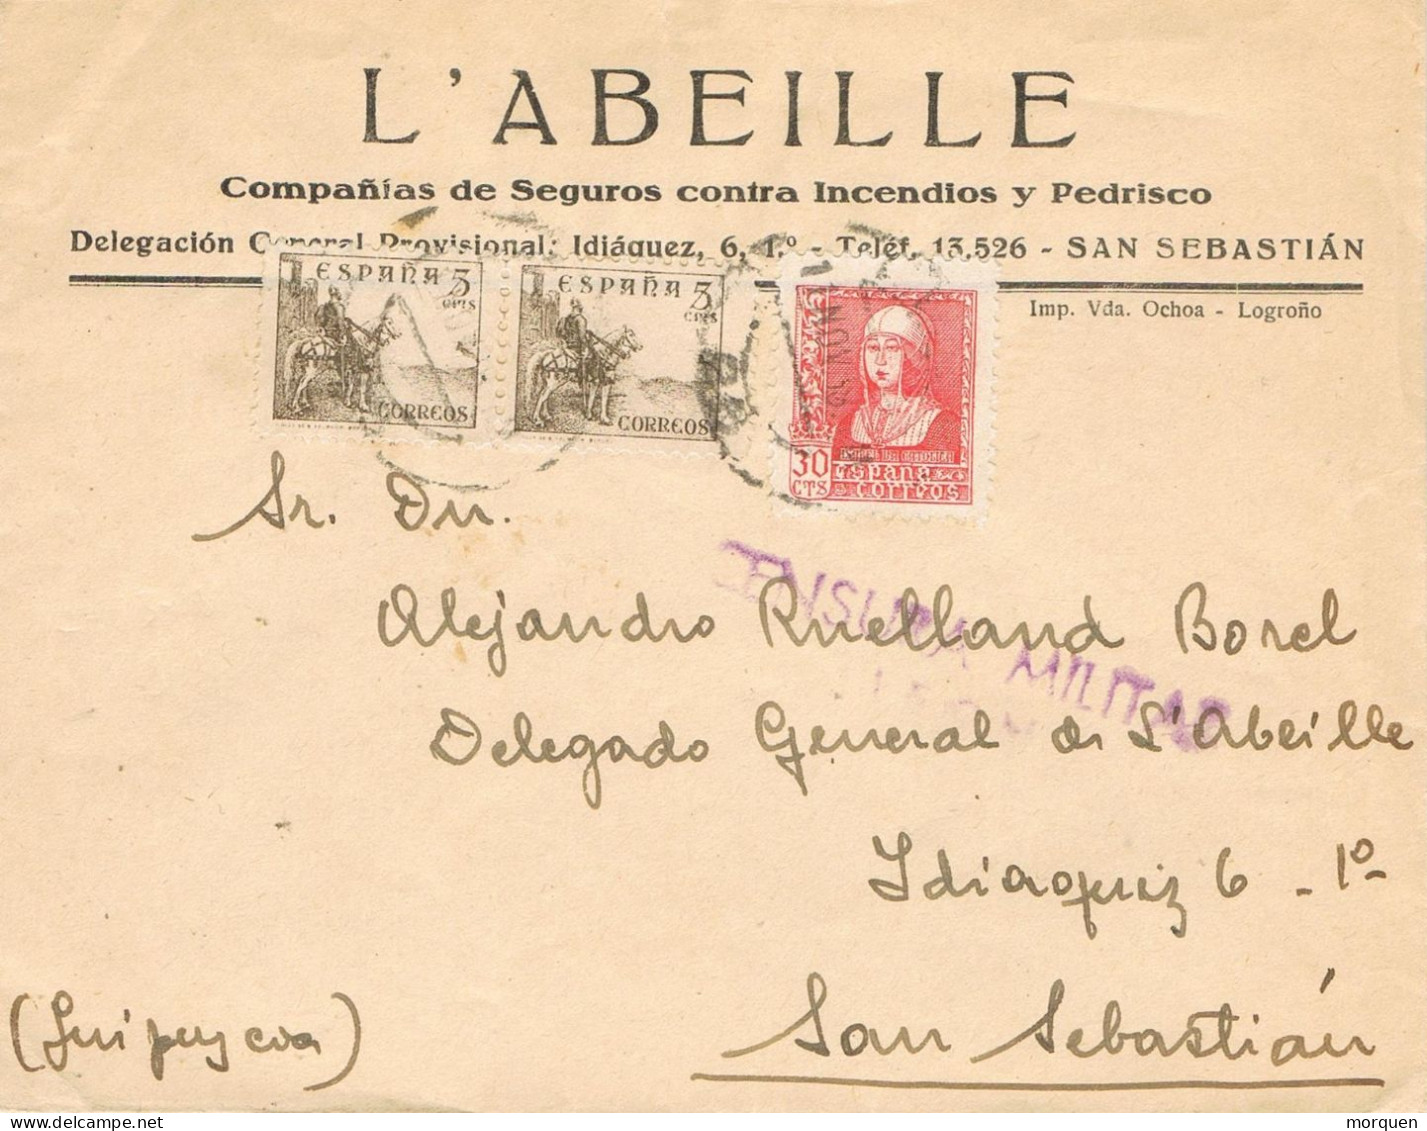 L'ABEILLE
Compañías de Seguros contra Incendios y Pedrisco
Delegación General Provisional: Idiáquez, 6, 1.º - Teléf. 13.526 - SAN SEBASTIÁN
Imp. Vda. Ochoa - Logroño
ESPAÑA 5 CTS
CORREOS
ESPAÑA 5 CTS
CORREOS
ISABEL LA CATOLICA
30 CTS ESPAÑA CORREOS
Sr. Dn.
CENSURA MILITAR
Alejandro Ruelland Borel
Delegado General de L'Abeille
Idiaquiz 6 - 1º-
San Sebastián
(Guipuzcoa)
morquen